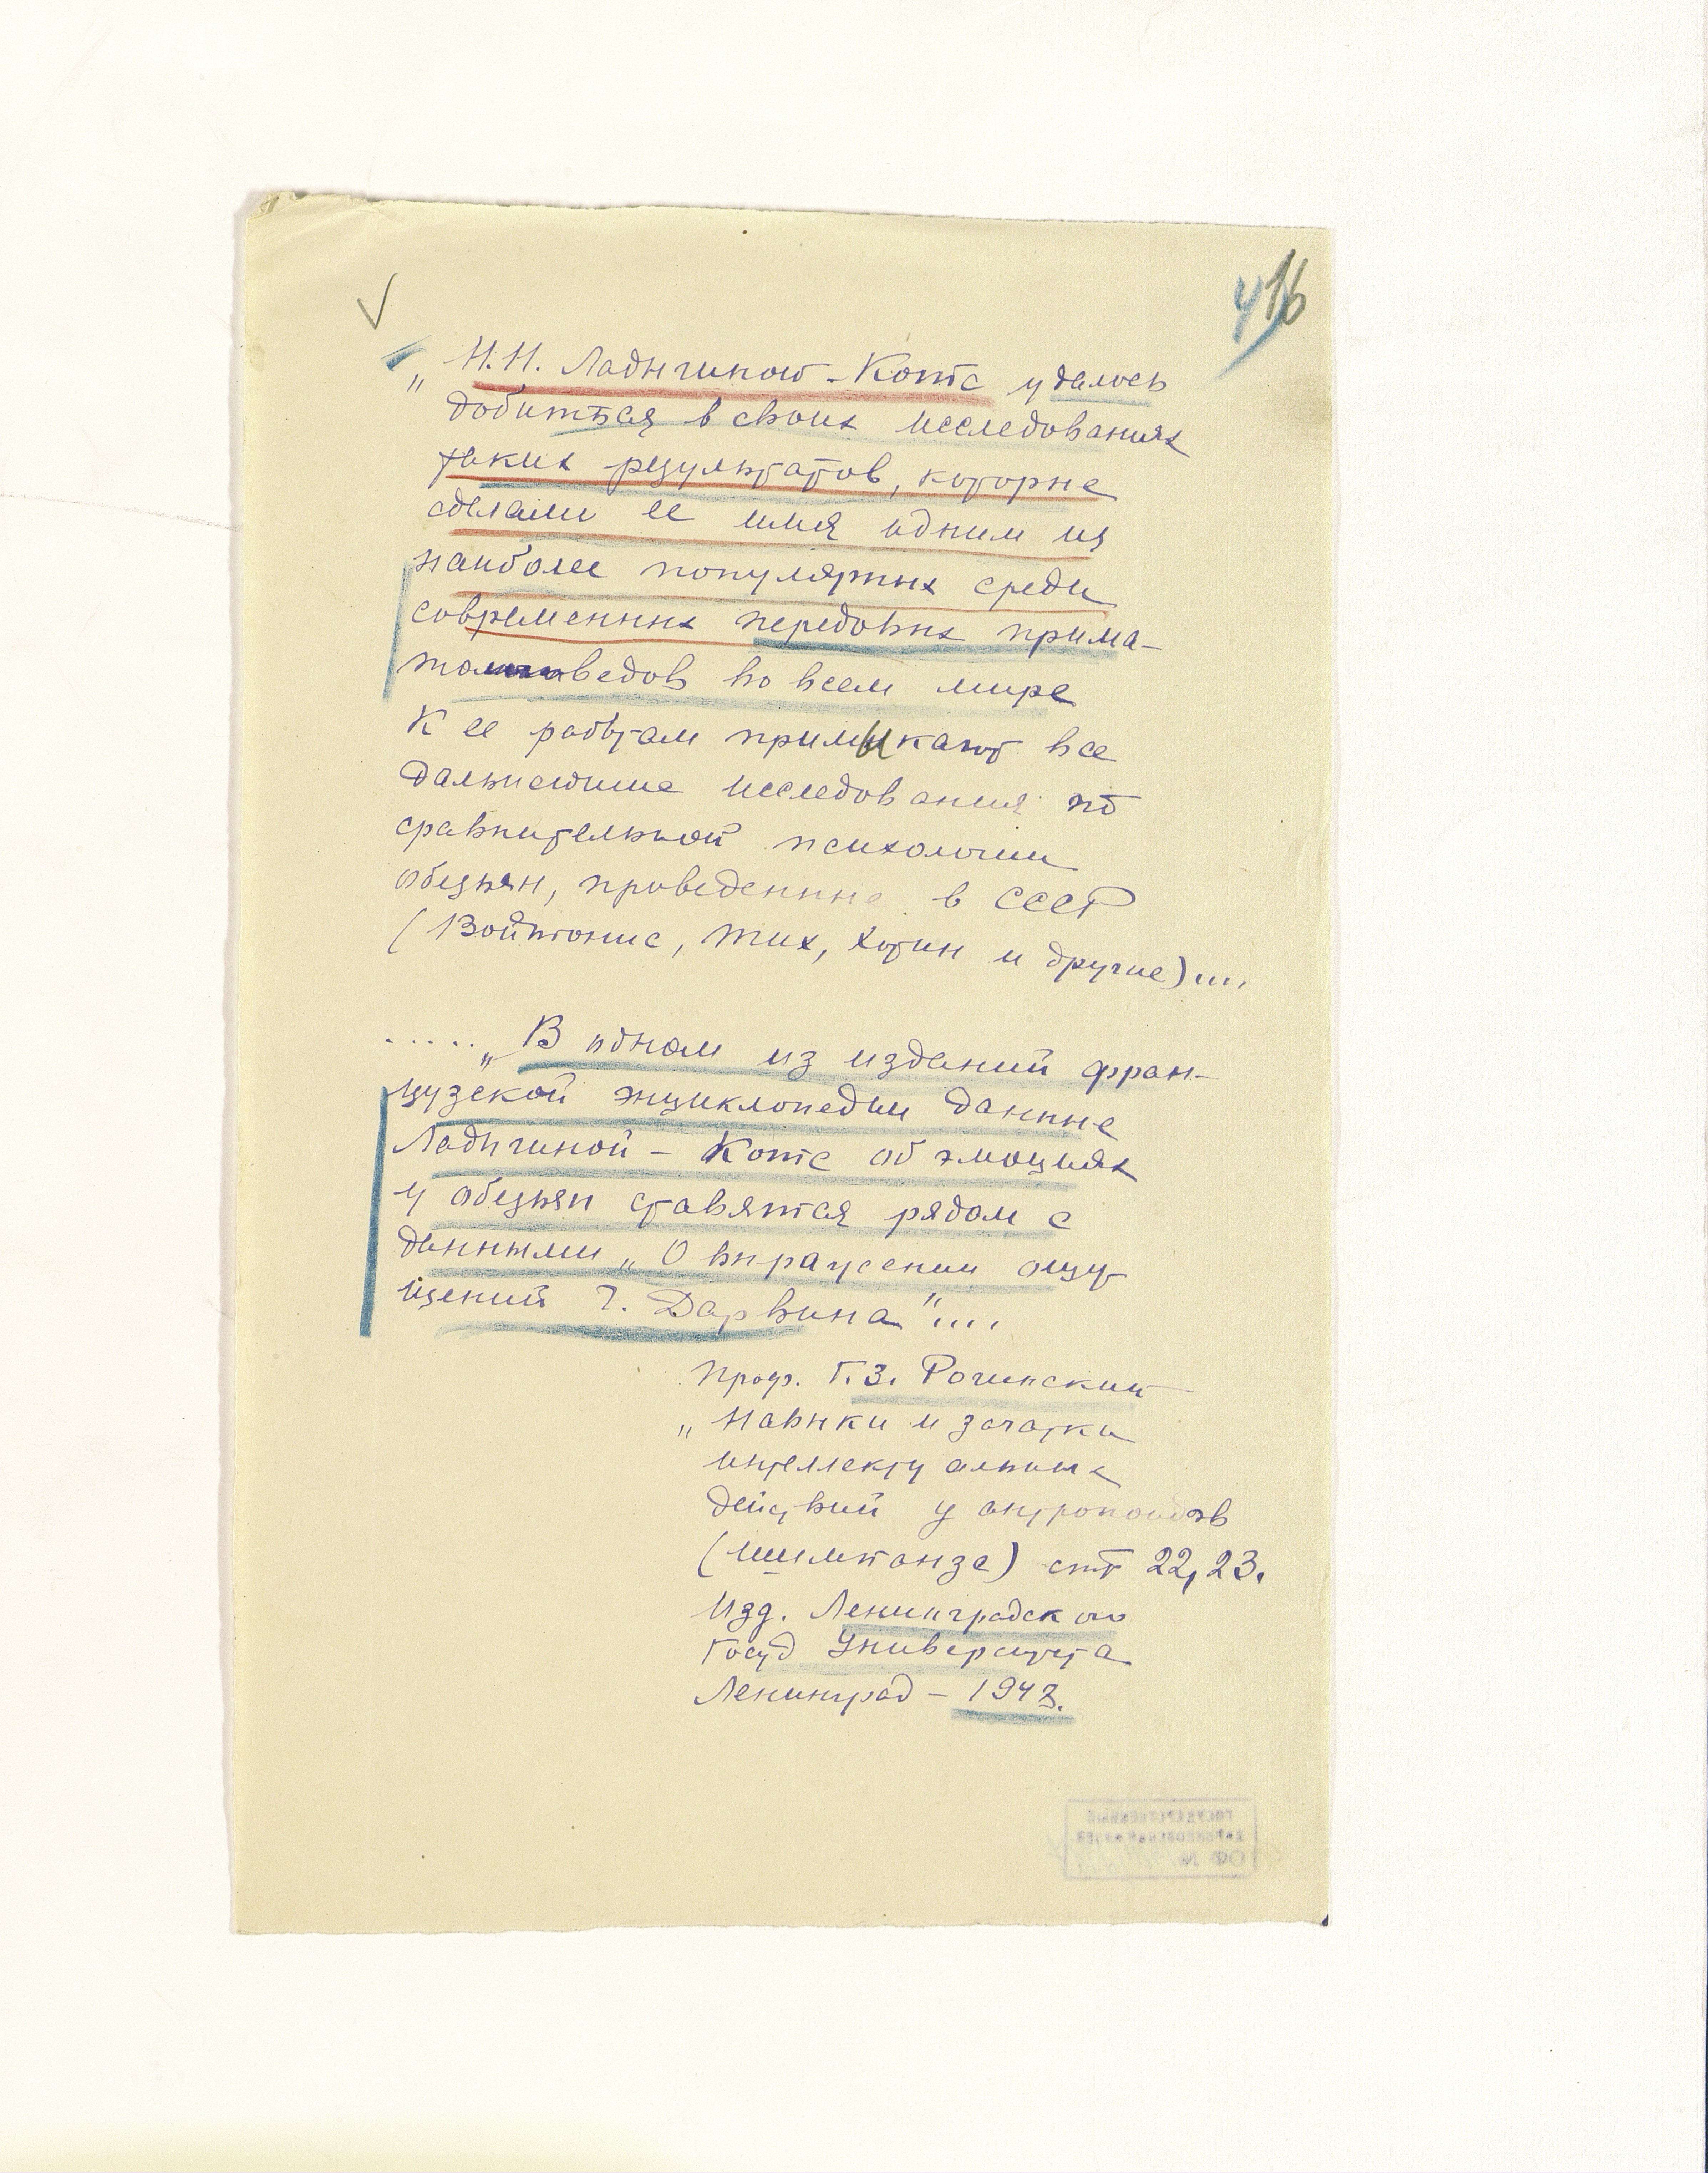 16
„Н.Н. Ладыгиной-Котс удалось
добиться в своих исследованиях
таких результатов, которые
сделали ее имя одним из
наиболее популярных среди
современных передовых прима-
товедов во всем мире
К ее работам примыкают все
дальнейшие исследования по
сравнительной психологии
обезьян, проведенные в СССР
(Войтонис, Тих, Хотин и другие)....
..... „В одном из изданий фран-
цузской энциклопедии данные
Ладыгиной - Котс об эмоциях
у обезьян ставятся рядом с
данными „О выражении ощу-
щений Ч. Дарвина"....
проф. Г.З. Рогинский
„Навыки и зачатки
интеллектуальных
действий у антропоидов
(шимпанзе) стр 22, 23.
Изд. Ленинградского
Госуд Университета
Ленинград - 1948.
ГОСУДАРСТВЕННЫЙ
ДАРВИНОВСКИЙ МУЗЕЙ
ОФ №